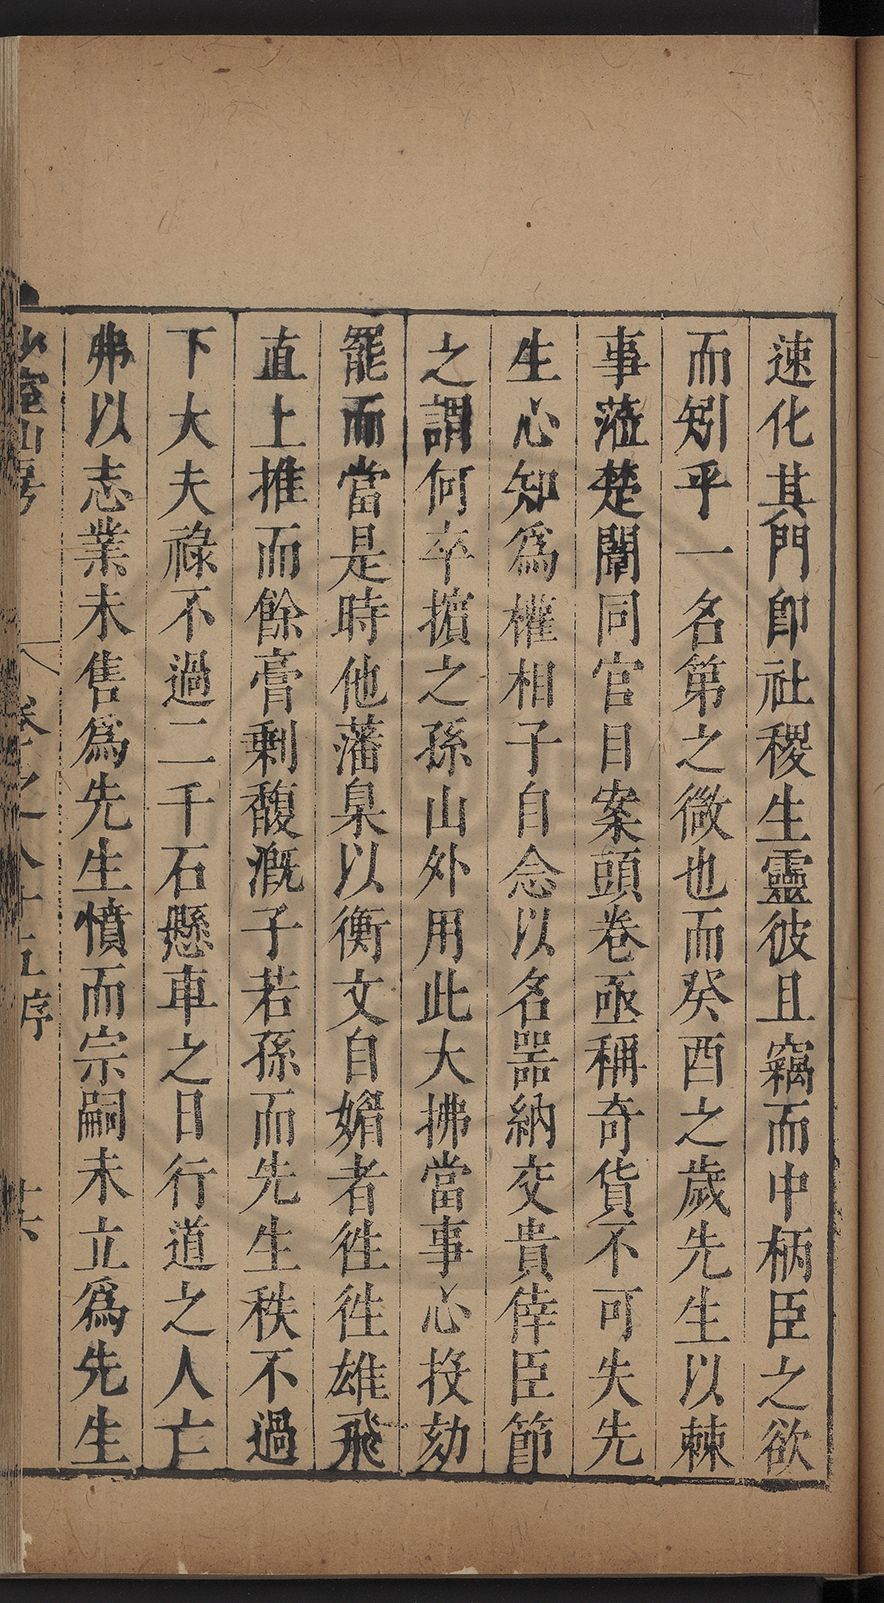 速化其門卽社稷生靈彼且竊而中柄臣之欲
而矧乎一名第之微也而癸酉之歲先生以棘
事蒞楚闈同官目案頭卷亟稱奇貨不可失先
生心知爲權相子自念以名噐納交貴倖臣節
之謂何卒擯之孫山外用此大拂當事心投劾
罷而當是時他藩臬以衡文自媚者徃徃雄飛
直上推而餘膏剩馥溉子若孫而先生秩不過
下大夫祿不過二千石懸車之日行道之人亡
弗以志業未售爲先生憤而宗嗣未立爲先生
少室山房 卷之八十五序